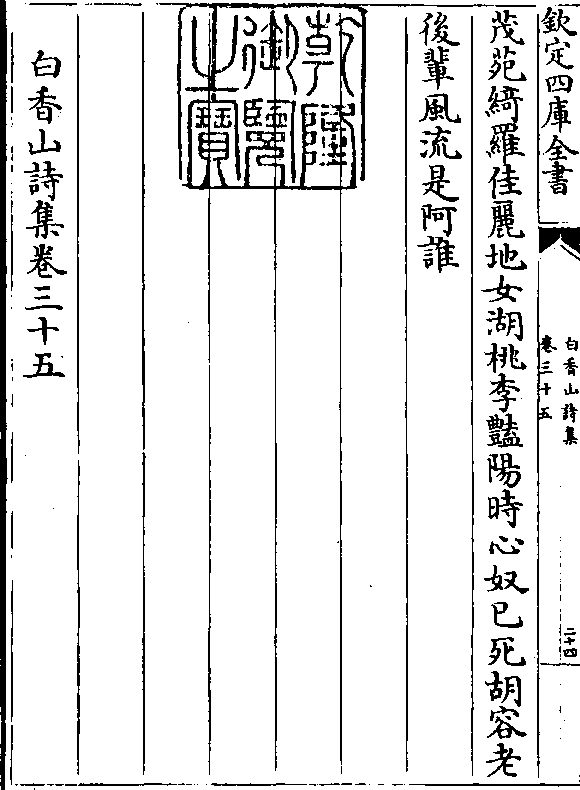 欽定四庫全書
白香山詩集
卷三十五
二十四
茂苑綺羅佳麗地女湖桃李豔陽時心奴已死胡容老
後輩風流是阿誰
乾隆
御覽
之寶
白香山詩集卷三十五